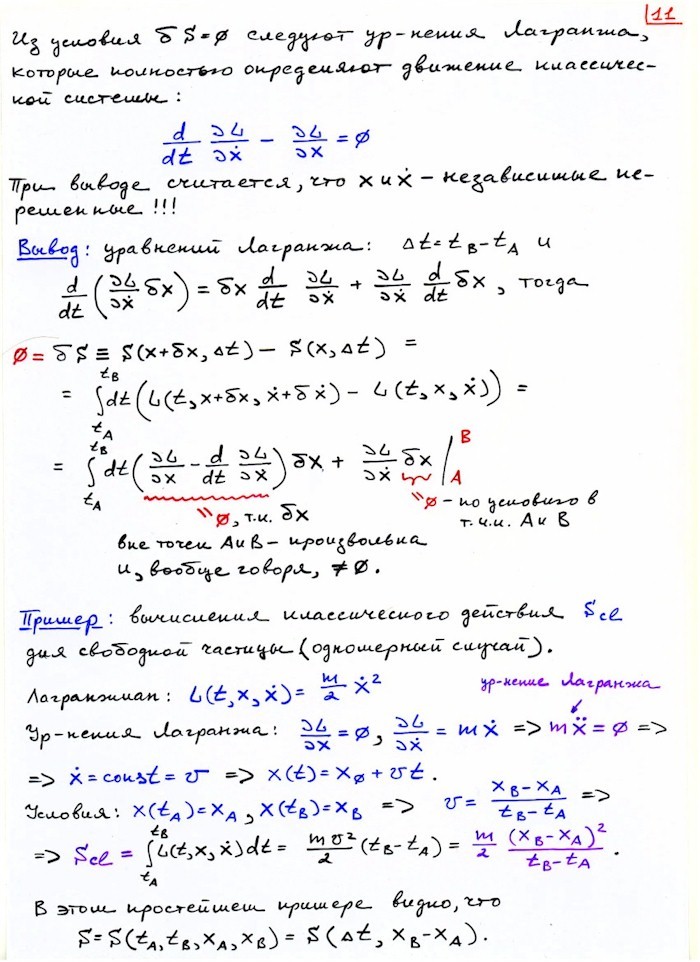 11
Из условия δS=∅ следуют ур-нения Лагранжа,
которые полностью определяют движение классичес-
кой системы:
d/dt ∂L/∂ẋ − ∂L/∂x = ∅
При выводе считается, что x и ẋ – независимые пе-
ременные!!!
Вывод: уравнений Лагранжа: Δt = t_B − t_A и
d/dt (∂L/∂ẋ δx) = δx d/dt ∂L/∂ẋ + ∂L/∂ẋ d/dt δx, тогда
∅ = δS ≡ S(x+δx, Δt) − S(x, Δt) =
= ∫_{t_A}^{t_B} dt (L(t, x+δx, ẋ+δẋ) − L(t, x, ẋ)) =
= ∫_{t_A}^{t_B} dt (∂L/∂x − d/dt ∂L/∂ẋ) δx + ∂L/∂ẋ δx |_A^B
"∅, т.к. δx
вне точек A и B – произвольна
и, вообще говоря, ≠ ∅.
"∅ – по условию в
т.ч.к. A и B
Пример: вычисления классического действия S_cl
для свободной частицы (одномерный случай).
Лагранжиан: L(t, x, ẋ) = m/2 ẋ²
ур-нение Лагранжа
Ур-ния Лагранжа: ∂L/∂x = ∅, ∂L/∂ẋ = mẋ => mẍ = ∅ =>
=> ẋ = const = v => x(t) = x_∅ + vt.
Условия: x(t_A) = x_A, x(t_B) = x_B => v = (x_B − x_A)/(t_B − t_A) =>
=> S_cl = ∫_{t_A}^{t_B} L(t, x, ẋ) dt = mv²/2 (t_B − t_A) = m/2 (x_B − x_A)²/(t_B − t_A).
В этом простейшем примере видно, что
S = S(t_A, t_B, x_A, x_B) = S(Δt, x_B − x_A).